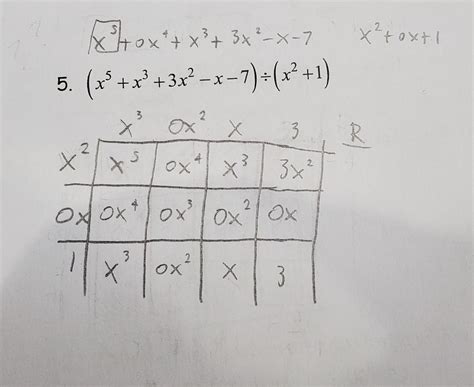 x⁵ + 0x⁴ + x³ + 3x² - x - 7    x² + 0x + 1
5. (x⁵ + x³ + 3x² − x − 7) ÷ (x² + 1)
x³ 0x² x 3 R
x² x⁵ 0x⁴ x³ 3x²
0x 0x⁴ 0x³ 0x² 0x
1 x³ 0x² x 3